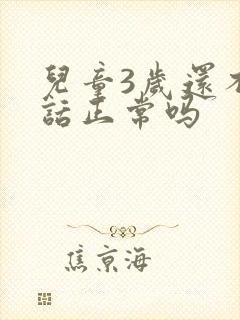 兒童3歲還不
話正常吗
焦京海